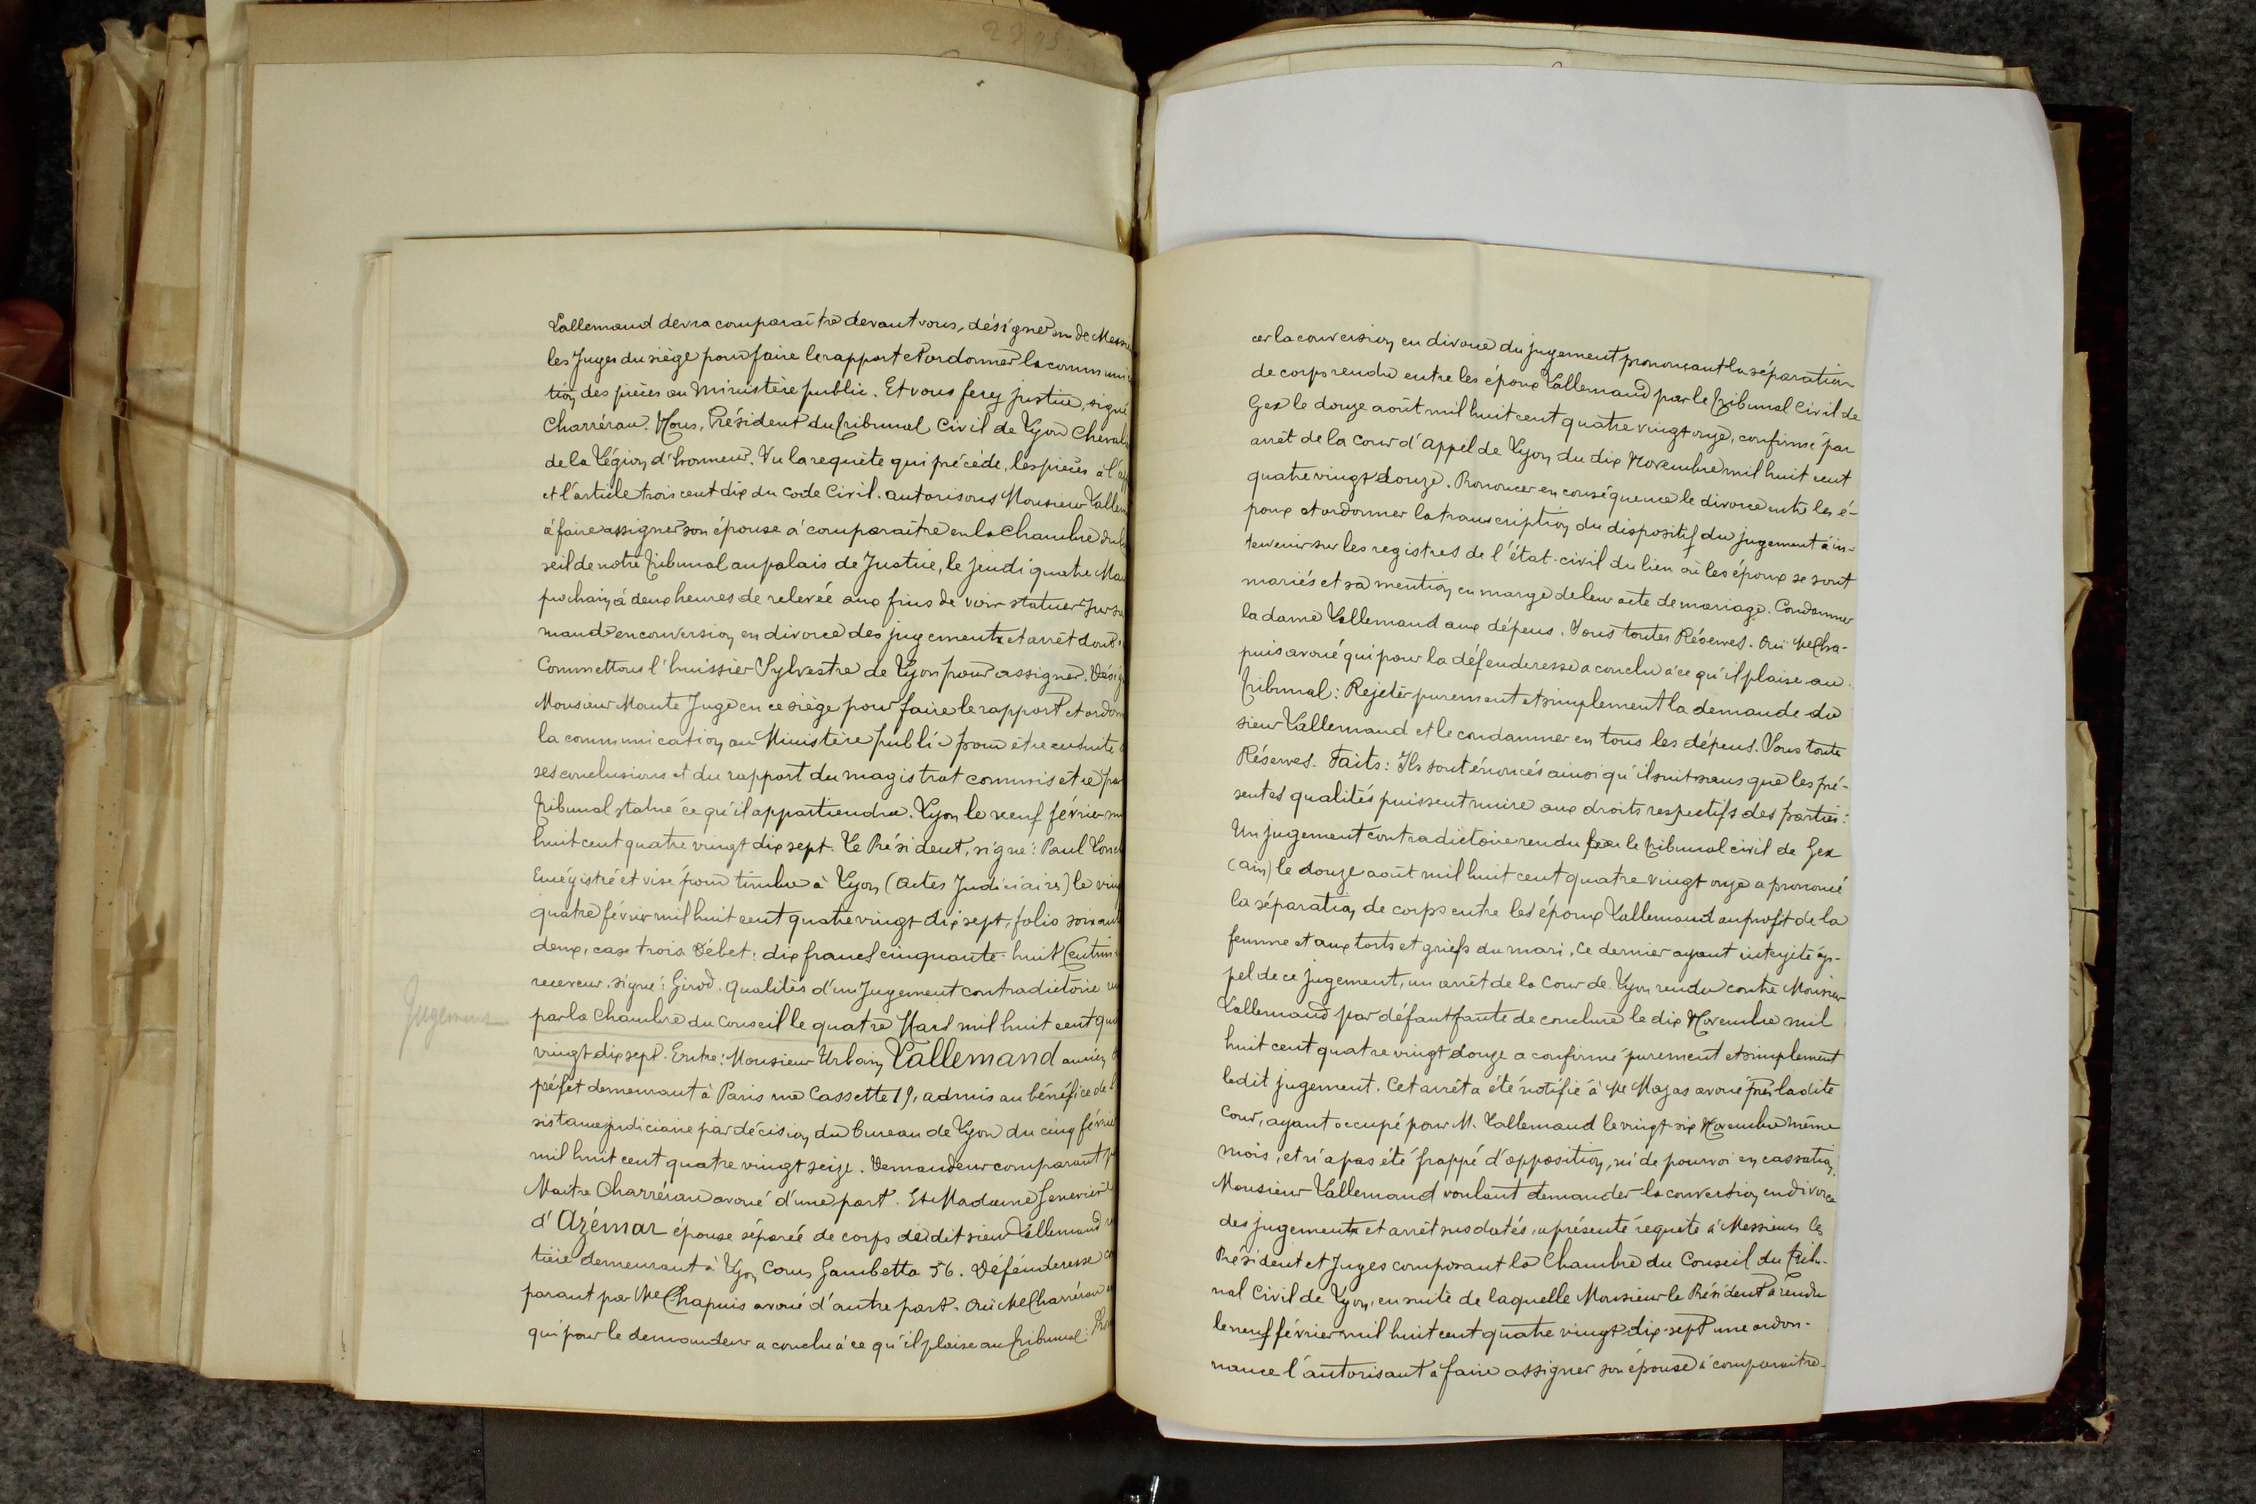 Lallemand devra comparaître devant vous, désigner un de Messie
les Juges du siège pour faire le rapport et ordonner la communi
tion des pièces au Ministère public. Et vous ferez justice, signé
Charrérau. Nous, Président du Tribunal Civil de Lyon Cheval
de la Légion d'honneur. Vu la requête qui précède, les pièces à l'app
et l'article trois cent dix du Code Civil. autorisons Monsieur Lallem
à faire assigner son épouse à comparaître en la Chambre du
seil de notre Tribunal au palais de Justice, le jeudi quatre Ma
prochain à deux heures de relevée aux fins de voir statuer sur sa
mande en conversion en divorce des jugements et arrêt dont
Commettons l'huissier Sylvestre de Lyon pour assigner. Dési
Monsieur Monte Juge en ce siège pour faire le rapport et ordon
la communication au Ministère public pour être ensuite
ses conclusions et du rapport du magistrat commis être par
Tribunal statué ce qu'il appartiendra. Lyon le neuf février m
huit cent quatre vingt dix sept. Le Président, signé: Paul
Enrégistré et visé pour timbre à Lyon (Actes Judiciaires) le ving
quatre février mil huit cent quatre vingt dix sept, folio soixant
deux, case trois. Débet: dix francs cinquante-huit Centim
receveur. signé: Girod. Qualités d'un Jugement contradictoire
Jugement
par la Chambre du Conseil le quatre Mars mil huit cent qua
vingt dix sept. Entre: Monsieur Urbain Lallemand ancien
préfet demeurant à Paris rue Cassette 19, admis au bénéfice de l
sistance judiciaire par décision du bureau de Lyon du cinq févrie
mil huit cent quatre vingt seize. Demandeur comparant p
Maître Charrérau avoué d'une part. Et Madame Geneviève
d'Azémar épouse séparée de corps du dit sieur Lallemand
tière demeurant à Lyon Cours Gambetta 56. Défenderesse
parant par Me Chapuis avoué d'autre part. Ouï Me Charrérau
qui pour le demandeur a conclu à ce qu'il plaise au Tribunal:
cer la conversion en divorce du jugement prononçant la séparation
de corps rendu entre les époux Lallemand par le Tribunal Civil de
Gex le douze août mil huit cent quatre vingt onze, confirmé par
arrêt de la Cour d'Appel de Lyon, du dix Novembre mil huit cent
quatre vingt douze. Prononcer en conséquence le divorce entre les é-
poux et ordonner la transcription du dispositif du jugement à in-
tervenir sur les registres de l'état-civil du lieu où les époux se sont
mariés et sa mention en marge de leur acte de mariage. Condamner
la dame Lallemand aux dépens. Sous toutes Réserves. Ouï Me Cha-
puis avoué qui pour la défenderesse a conclu à ce qu'il plaise au
Tribunal: Rejeter purement et simplement la demande du
sieur Lallemand et le condamner en tous les dépens. Sous toute
Réserves. Faits: Ils sont énoncés ainsi qu'il suit sans que les pré-
sentes qualités puissent nuire aux droits respectifs des parties:
Un jugement contradictoire rendu par le Tribunal civil de Gex
(ain) le douze août mil huit cent quatre vingt onze a prononcé
la séparation de corps entre les époux Lallemand au profit de la
femme et aux torts et griefs du mari. Ce dernier ayant interjeté ap-
pel de ce jugement, un arrêt de la Cour de Lyon rendu contre Monsieur
Lallemand par défaut faute de conclure le dix Novembre mil
huit cent quatre vingt douze a confirmé purement et simplement
ledit jugement. Cet arrêt a été notifié à Me Mazas avoué près ladite
Cour, ayant occupé pour M. Lallemand le vingt six Novembre même
mois, et n'a pas été frappé d'opposition, ni de pourvoi en cassation.
Monsieur Lallemand voulant demander la conversion en divorce
des jugements et arrêt susdatés, a présenté requête à Messieurs les
Président et Juges composant la Chambre du Conseil du Tribu-
nal Civil de Lyon, ensuite de laquelle Monsieur le Président a rendu
le neuf février mil huit cent quatre vingt dix-sept une ordon-
nance l'autorisant à faire assigner son épouse à comparaître